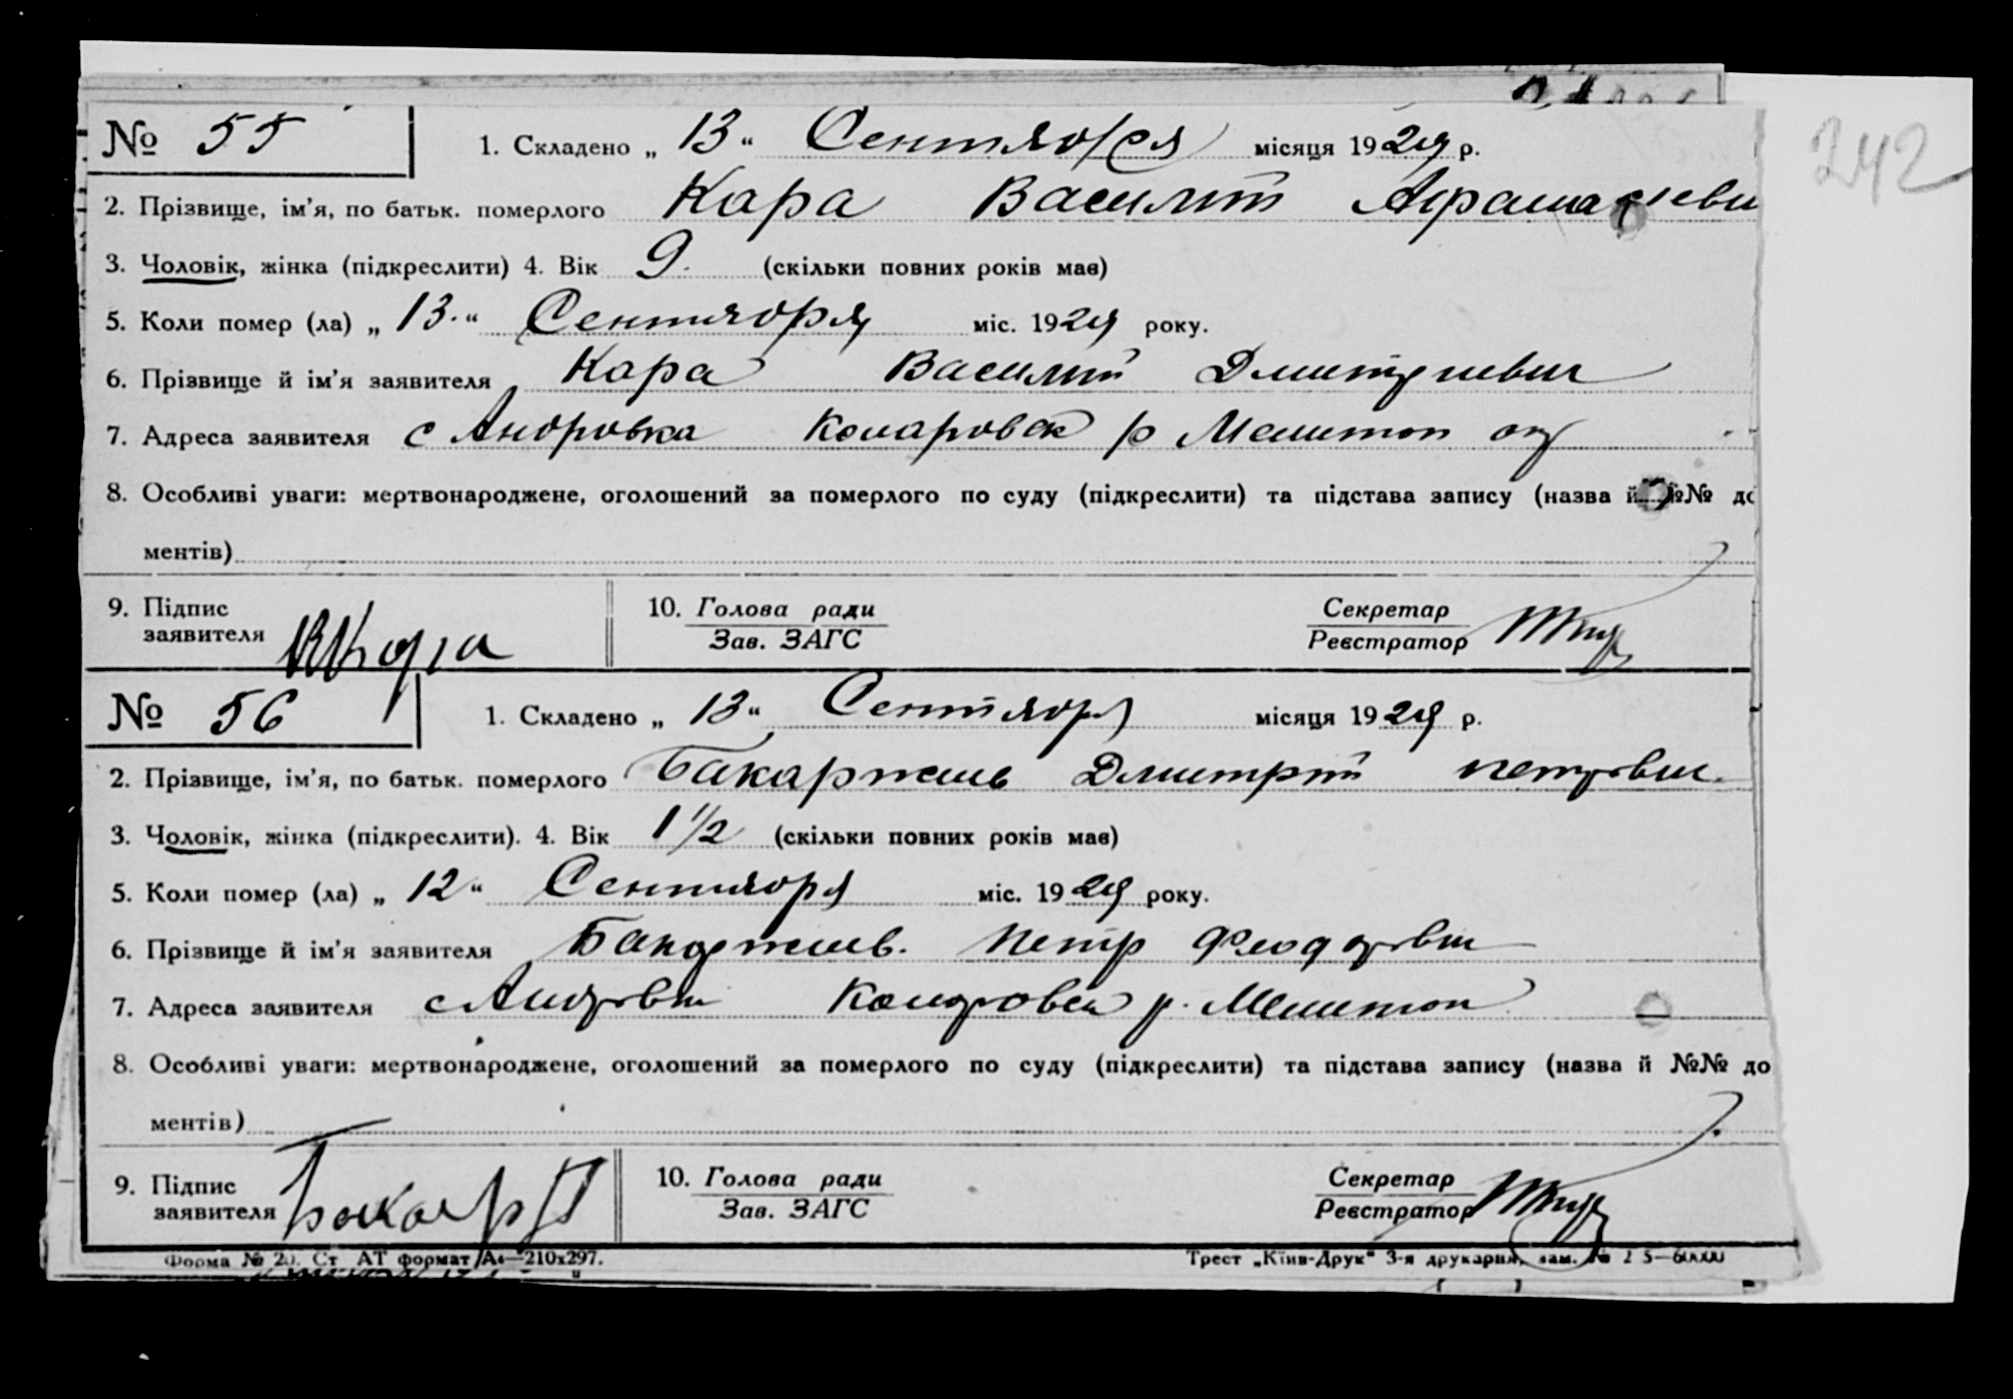 242
№ 55 1. Складено „ 13 “ Сентября місяця 1929 р.
2. Прізвище, ім'я, по батьк. померлого Кара Василий Афанасиеви
3. Чоловік, жінка (підкреслити) 4. Вік 9. (скільки повних років має)
5. Коли помер (ла) „ 13. “ Сентября міс. 1929 року.
6. Прізвище й ім'я заявителя Кара Василий Дмитриевич
7. Адреса заявителя с Андровка Комаровск р Мелитоп окр
8. Особливі уваги: мертвонароджене, оголошений за померлого по суду (підкреслити) та підстава запису (назва й №№ до
ментів)
9. Підпис заявителя ВКара 10. Голова ради Зав. ЗАГС Секретар Реєстратор
№ 56 1. Складено „ 13 “ Сентября місяця 1929 р.
2. Прізвище, ім'я, по батьк. померлого Дмитрий петрович
3. Чоловік, жінка (підкреслити). 4. Вік 1 1/2 (скільки повних років має)
5. Коли помер (ла) „ 12 “ Сентября міс. 1929 року.
6. Прізвище й ім'я заявителя Петр Феодорович
7. Адреса заявителя с р. Мелитоп
8. Особливі уваги: мертвонароджене, оголошений за померлого по суду (підкреслити) та підстава запису (назва й №№ до
ментів)
9. Підпис заявителя 10. Голова ради Зав. ЗАГС Секретар Реєстратор
Форма № 20. Ст АТ формат А4—210х297. Трест „Київ-Друк“ 3-я друкарня, зам. №